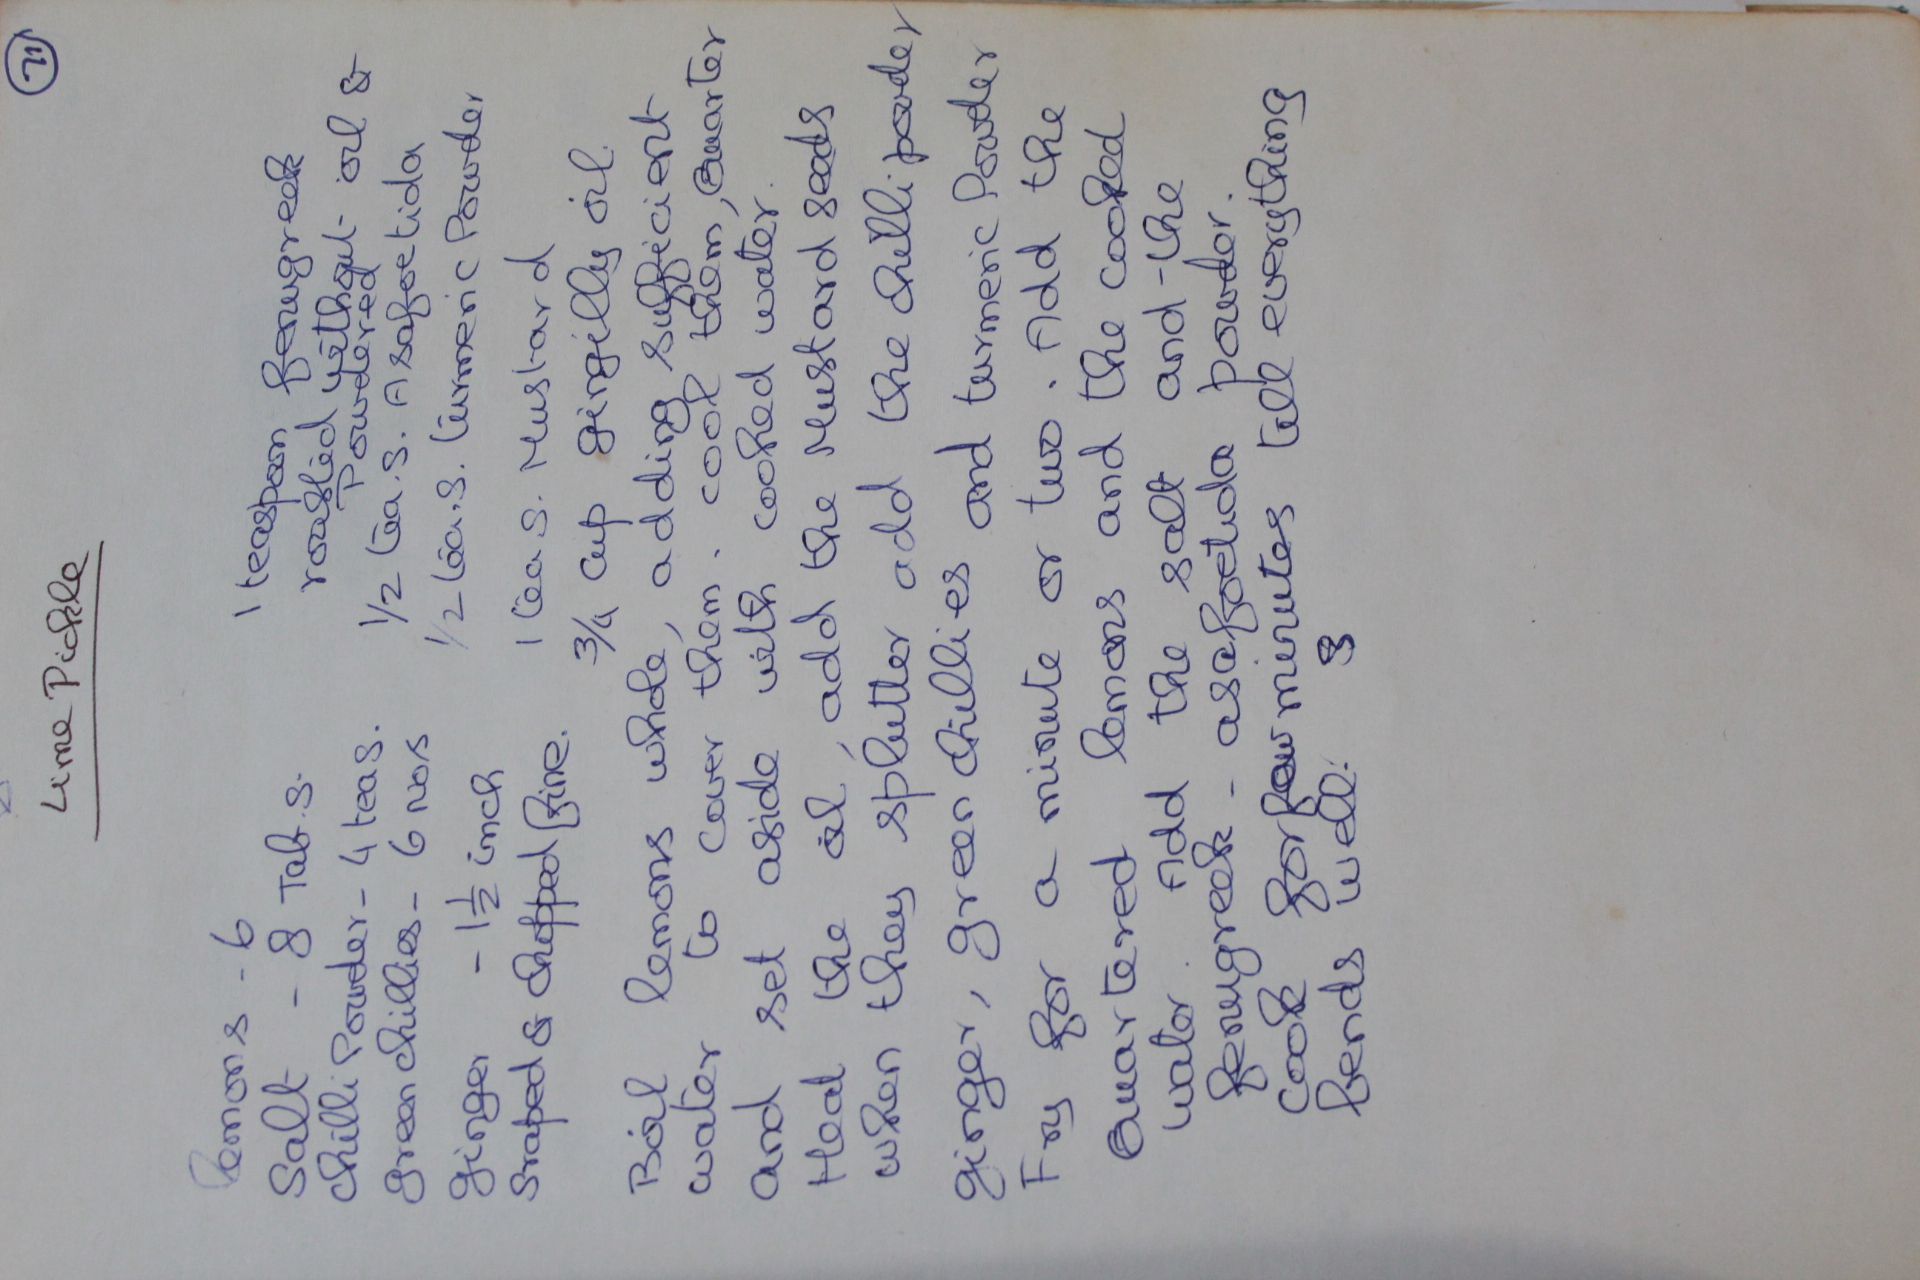 71
Lime Pickle
Lemons - 6
Salt - 8 Tab.s.
chilli Powder - 4 teas.
green chillies - 6 nos
ginger - 1 1/2 inch
Sraped & chopped fine.
1 teaspoon fenugreek
roasted without oil &
Powdered
1/2 tea.s. Asafoetida
1/2 tea.s. Turmeric Powder
1 tea s. Mustard
3/4 cup gingilly oil.
Boil lemons whole, adding sufficient
water to cover them. cool them, Quarter
and set aside with cooked water.
Heat the oil, add the Mustard seeds
when they splutter add the chilli powder
ginger, green chillies and turmeric Powder
Fry for a minute or two. Add the
Quartered lemons and the cooked
water. Add the salt and the
fenugreek - asafoetida powder.
Cook for few minutes till everything
bends well.